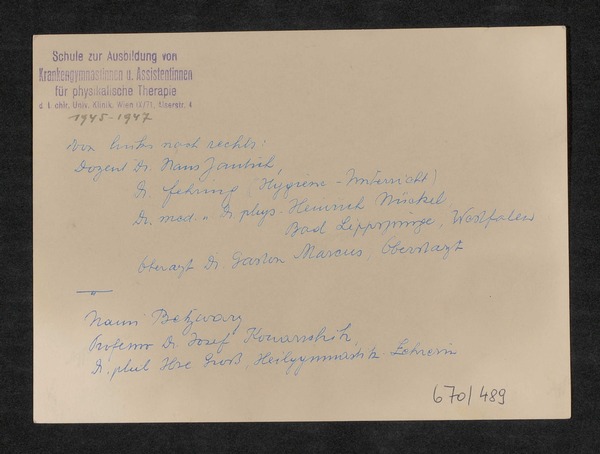 Schule zur Ausbildung von
Krankengymnastinnen u. Assistentinnen
für physikalische Therapie
d. I. chir. Univ. Klinik, Wien IX/71, Alserstr. 4
1945-1947
von links nach rechts:
Dozent Dr. Hans Jantsch,
Dr. Fehring (Hygiene-Unterricht)
Dr. med. u. Dr. phys. Heinrich Nückel,
Bad Lippspringe, Westfalen
Oberarzt Dr. Gaston Marcus, Oberstarzt
— " —
Nanni Betzwary
Professor Dr. Josef Kowarschik,
Dr. phil Ilse Groß, Heilgymnastik-Lehrerin
670/489